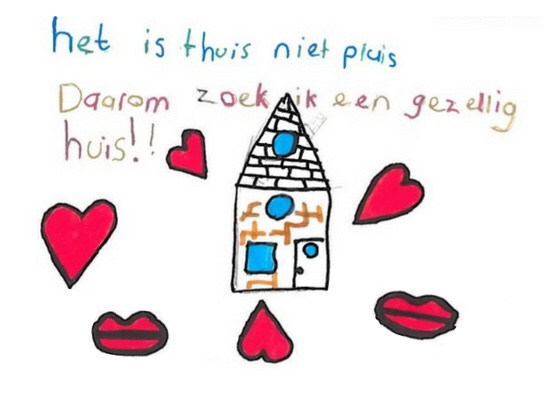 het is thuis niet pluis
Daarom zoek ik een gezellig
huis!!